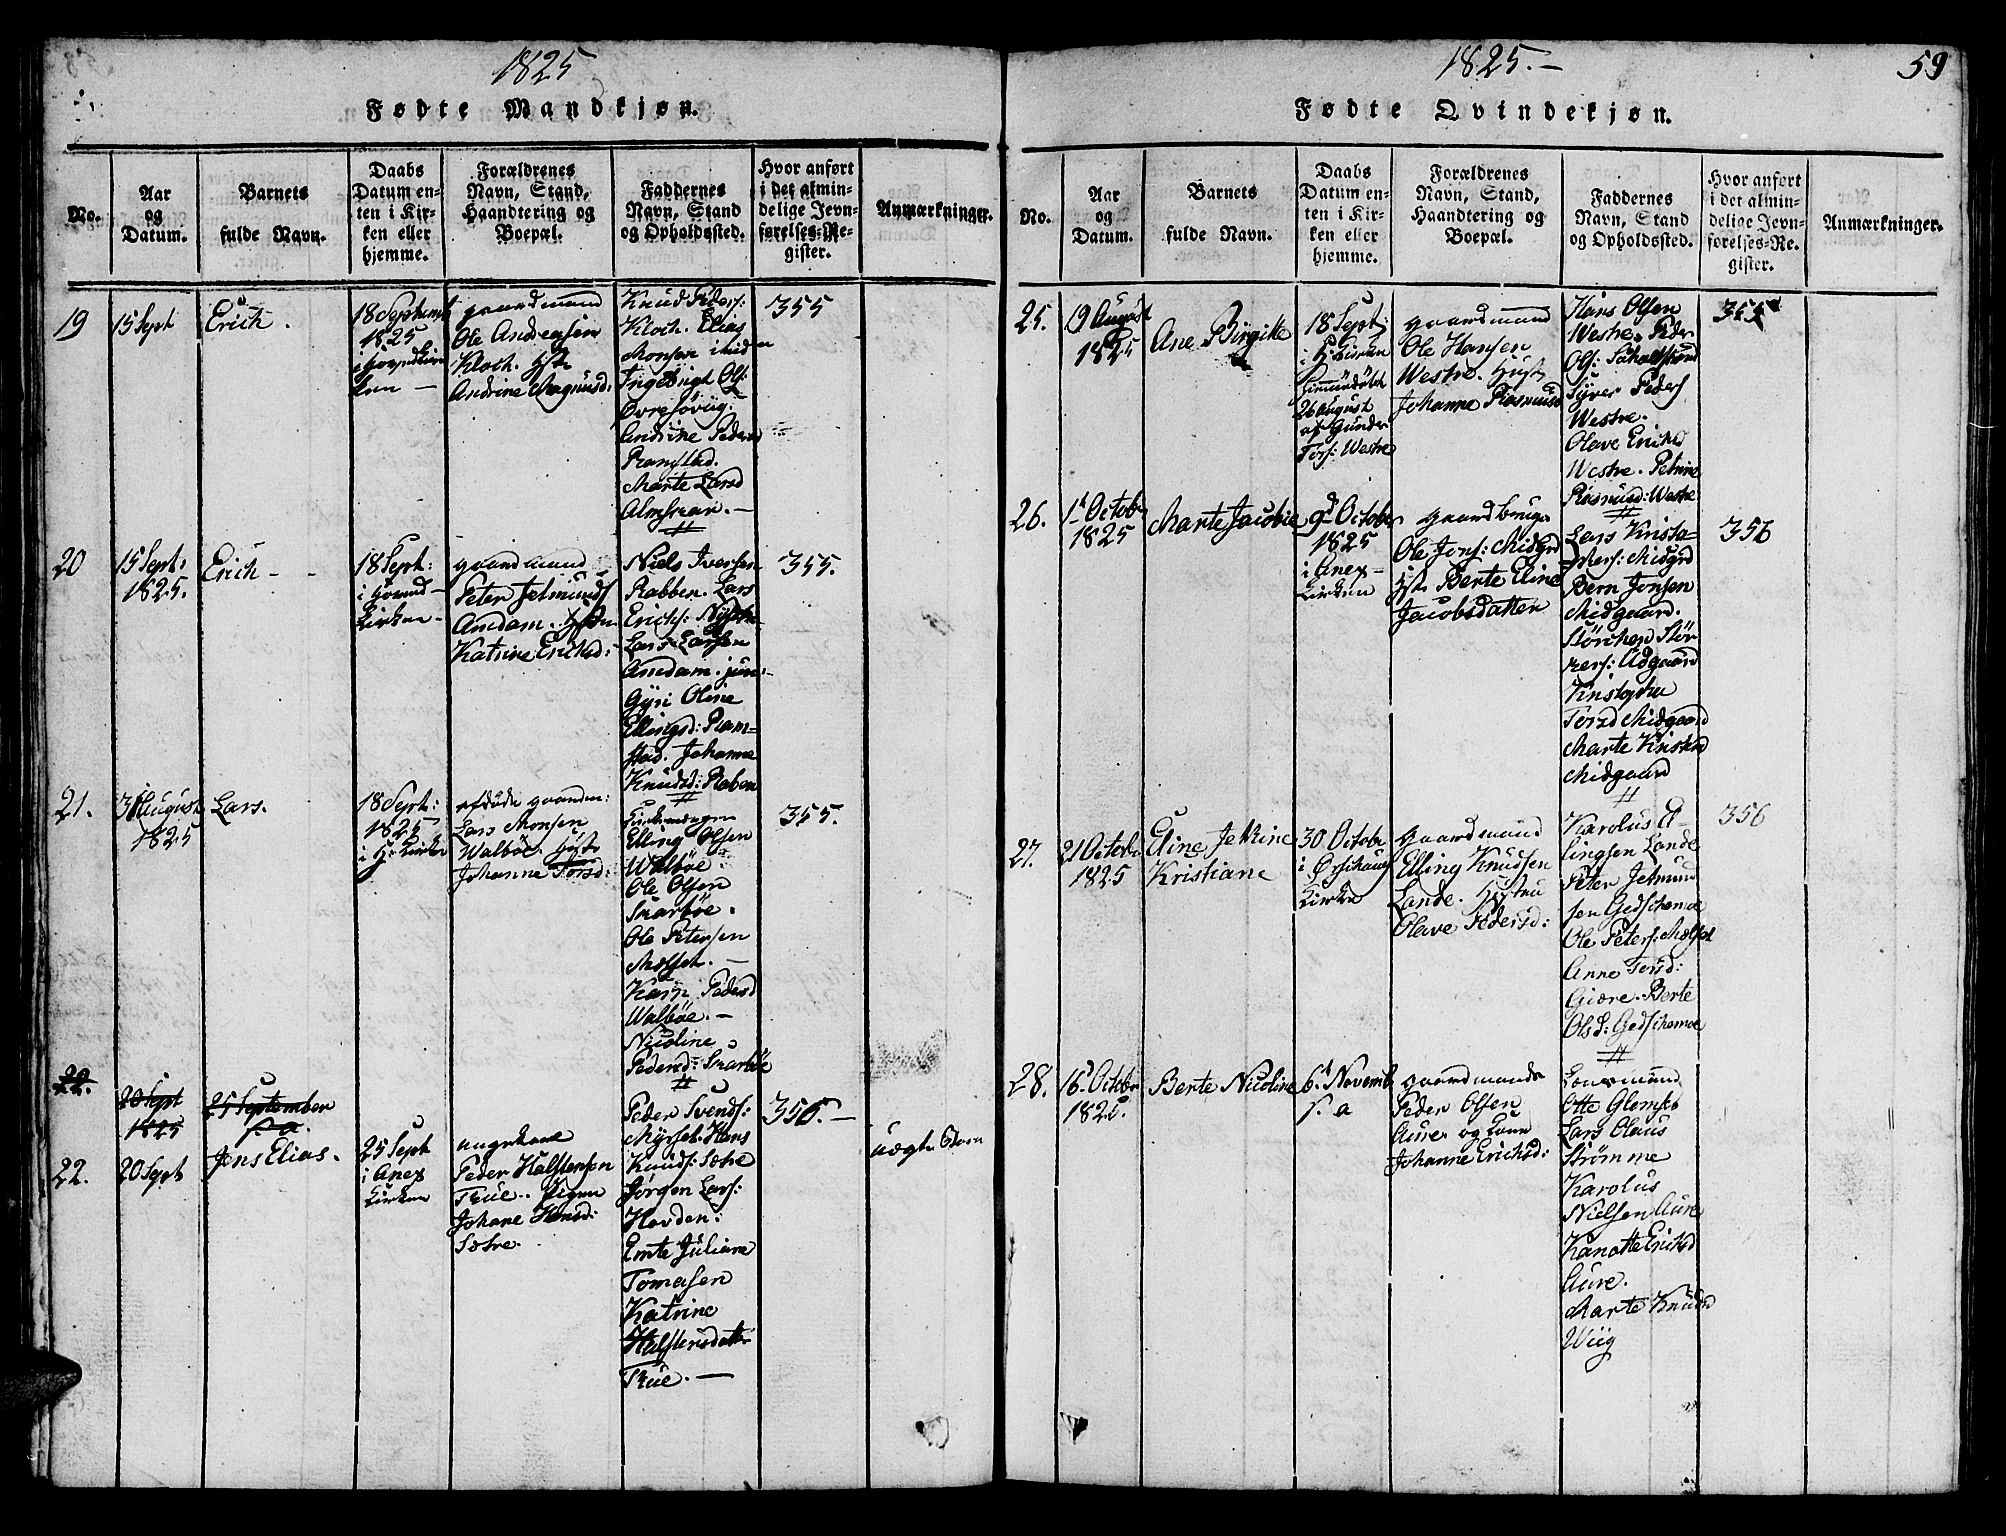 1825
Fødte Mandkjøn.
No.
Aar
og
Datum.
Barnets
fulde Navn.
Daabs
Datum en-
ten i Kir-
ken eller
hjemme.
Forældrenes
Navn, Stand,
Haandtering og
Boepæl.
Faddernes
Navn, Stand
og Opholdssted.
Hvor anført
i det almin-
delige Jevn-
førelses-Re-
gister.
Anmærkninger.
19
15 Sept
Erich.
18 Septemb
1825
ken —
gaardmand
Ole Andreasen
Kloch. Hst:
Andrine Magnusd:
Knud Peders:
Kloch. Elias
Monsen
Ingebrigt Ols:
Andrine Peders
Ramstad.
Marte Larsd
—
355
20
15 Sept:
1825.
Erich - -
18 Sept:
i Hovund-
Kirken-
gaardmand
Peter Jetmunds
Amdam. Hstr
Katrine Ericksd:
Niels Iversen
Rabben. Lars
Erichs:
Lars Larsen
Amdam. jun:
Gyri Oline
Ellingsd: Ram-
stad. Johanne
Knudsd: Raben
355.
21.
31 August
1825
Lars.
18 Sept:
1825
i H: Kirke
afdøde gaardm:
Lars Monsen
Walbøe. Hustr
Johanne Torsd:
Elling Olsen
Walbøe
Ole Olsen
Skarbøe.
Ole Petersen
Molset. —
Kari Pedersd
Walbøe. —
Nicoline
Pedersd: Skarbøe
355.
22.
20 Sept
1825
25 September
s. a.
22.
20 Sept
Jens Elias.
25 Sept
i Anex
Kirken
ungekarl
Peder Halstensen
True. Pigen
Johane Hansd:
Sætre.
Peder Svends:
Myrset. Hans
Knuds: Sætre
Jørgen Lars:
Hovden:
Emte Juliane
Tomasen
Katrine
Halstensdatter
True. —
356. —
uægte Barn
1825. —
59
Fødte Qvindekjøn.
No.
Aar
og
Datum.
Barnets
fulde Navn.
Daabs
Datum en-
ten i Kir-
ken eller
hjemme.
Forældrenes
Navn, Stand,
Haandtering og
Boepæl.
Faddernes
Navn, Stand
og Opholdssted.
Hvor anført
i det almin-
delige Jevn-
førelses-Re-
gister.
Anmærkninger.
25.
19 August
1825
Ane Birgitte
18 Sept:
i H: Kirken
Hiemmedøbt
26 August
af Gunder
Tors: Westre
gaardmand
Ole Hansen
Westre. Hust
Johanne Rasmusd
Hans Olsen
Westre. Peder
Syver Peders
Westre.
Olave Ericksd
Westre. Petrine
Rasmusd: Westre
355
26.
1 Octobr
1825
Marte Jacobie
9 Octobr
1825
i Anex-
Kirken
gaardbruger
Ole Jons: Midgrd
Hst: Berte Eline
Jacobsdatter
Lars Krista-
fers: Midgrd
Bern Jonsen
Midgaard.
Størcher Stør
kers: Adgaard
Torsd Midgaard
Marte Kristensd
Midgaard
356
27.
21 Octobr
1825
Eline Jekrine
Kristiane
30 Octobr
i Ørschaug
Kirke
gaardmand
Elling Knudsen
Lande. Hustru
Olave Pedersd:
Karolus El-
lingsen Lande
Peter Jetmund
sen Gedschemoe
Ole Peters: Molset
Anne Torsd:
Giære. Berte
Olsd: Gedschemoe
356
28.
16 Octobr
1825.
Berte Nicoline
6 Novemb
s. a
gaardmand
Peder Olsen
Aure og Kone
Johanne Ericksd:
Otte Glomset
Lars Olaus
Strømme
Karolus
Nielsen Aure
Kanutte Ericksd
Aure.
Marte Knudsd
Wiig